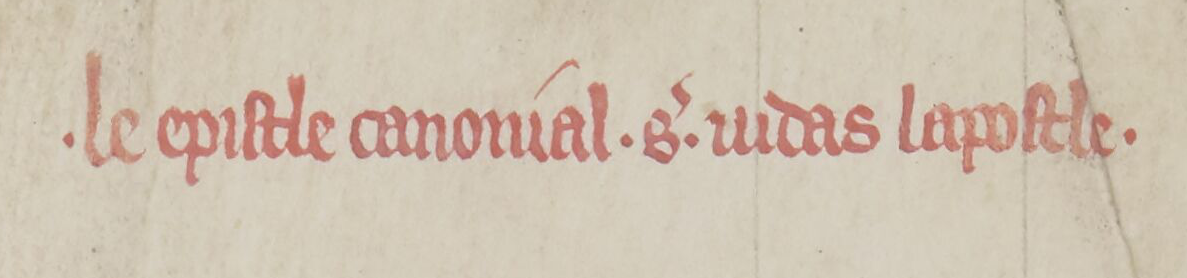 ·le epistle canonial· s᾽· iudas lapostle·